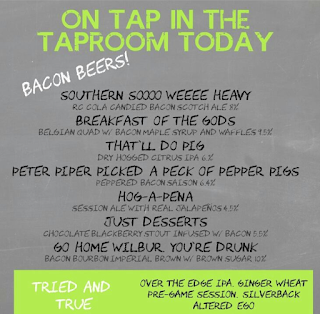 ON TAP IN THE
TAPROOM TODAY
BACON BEERS!
SOUTHERN SOOOO WEEEE HEAVY
RC COLA CANDIED BACON SCOTCH ALE 8%
BREAKFAST OF THE GODS
BELGIAN QUAD W/ BACON MAPLE SYRUP AND WAFFLES 9.5%
THAT'LL DO PIG
DRY HOGGED CITRUS IPA 6.%
PETER PIPER PICKED A PECK OF PEPPER PIGS
PEPPERED BACON SAISON 6.4%
HOG-A-PENA
SESSION ALE WITH REAL JALAPEÑOS 4.5%
JUST DESSERTS
CHOCOLATE BLACKBERRY STOUT INFUSED W/ BACON 5.5%
GO HOME WILBUR, YOU'RE DRUNK
BACON BOURBON IMPERIAL BROWN W/ BROWN SUGAR 10%
TRIED AND
TRUE
OVER THE EDGE IPA, GINGER WHEAT
PRE-GAME SESSION, SILVERBACK
ALTERED EGO